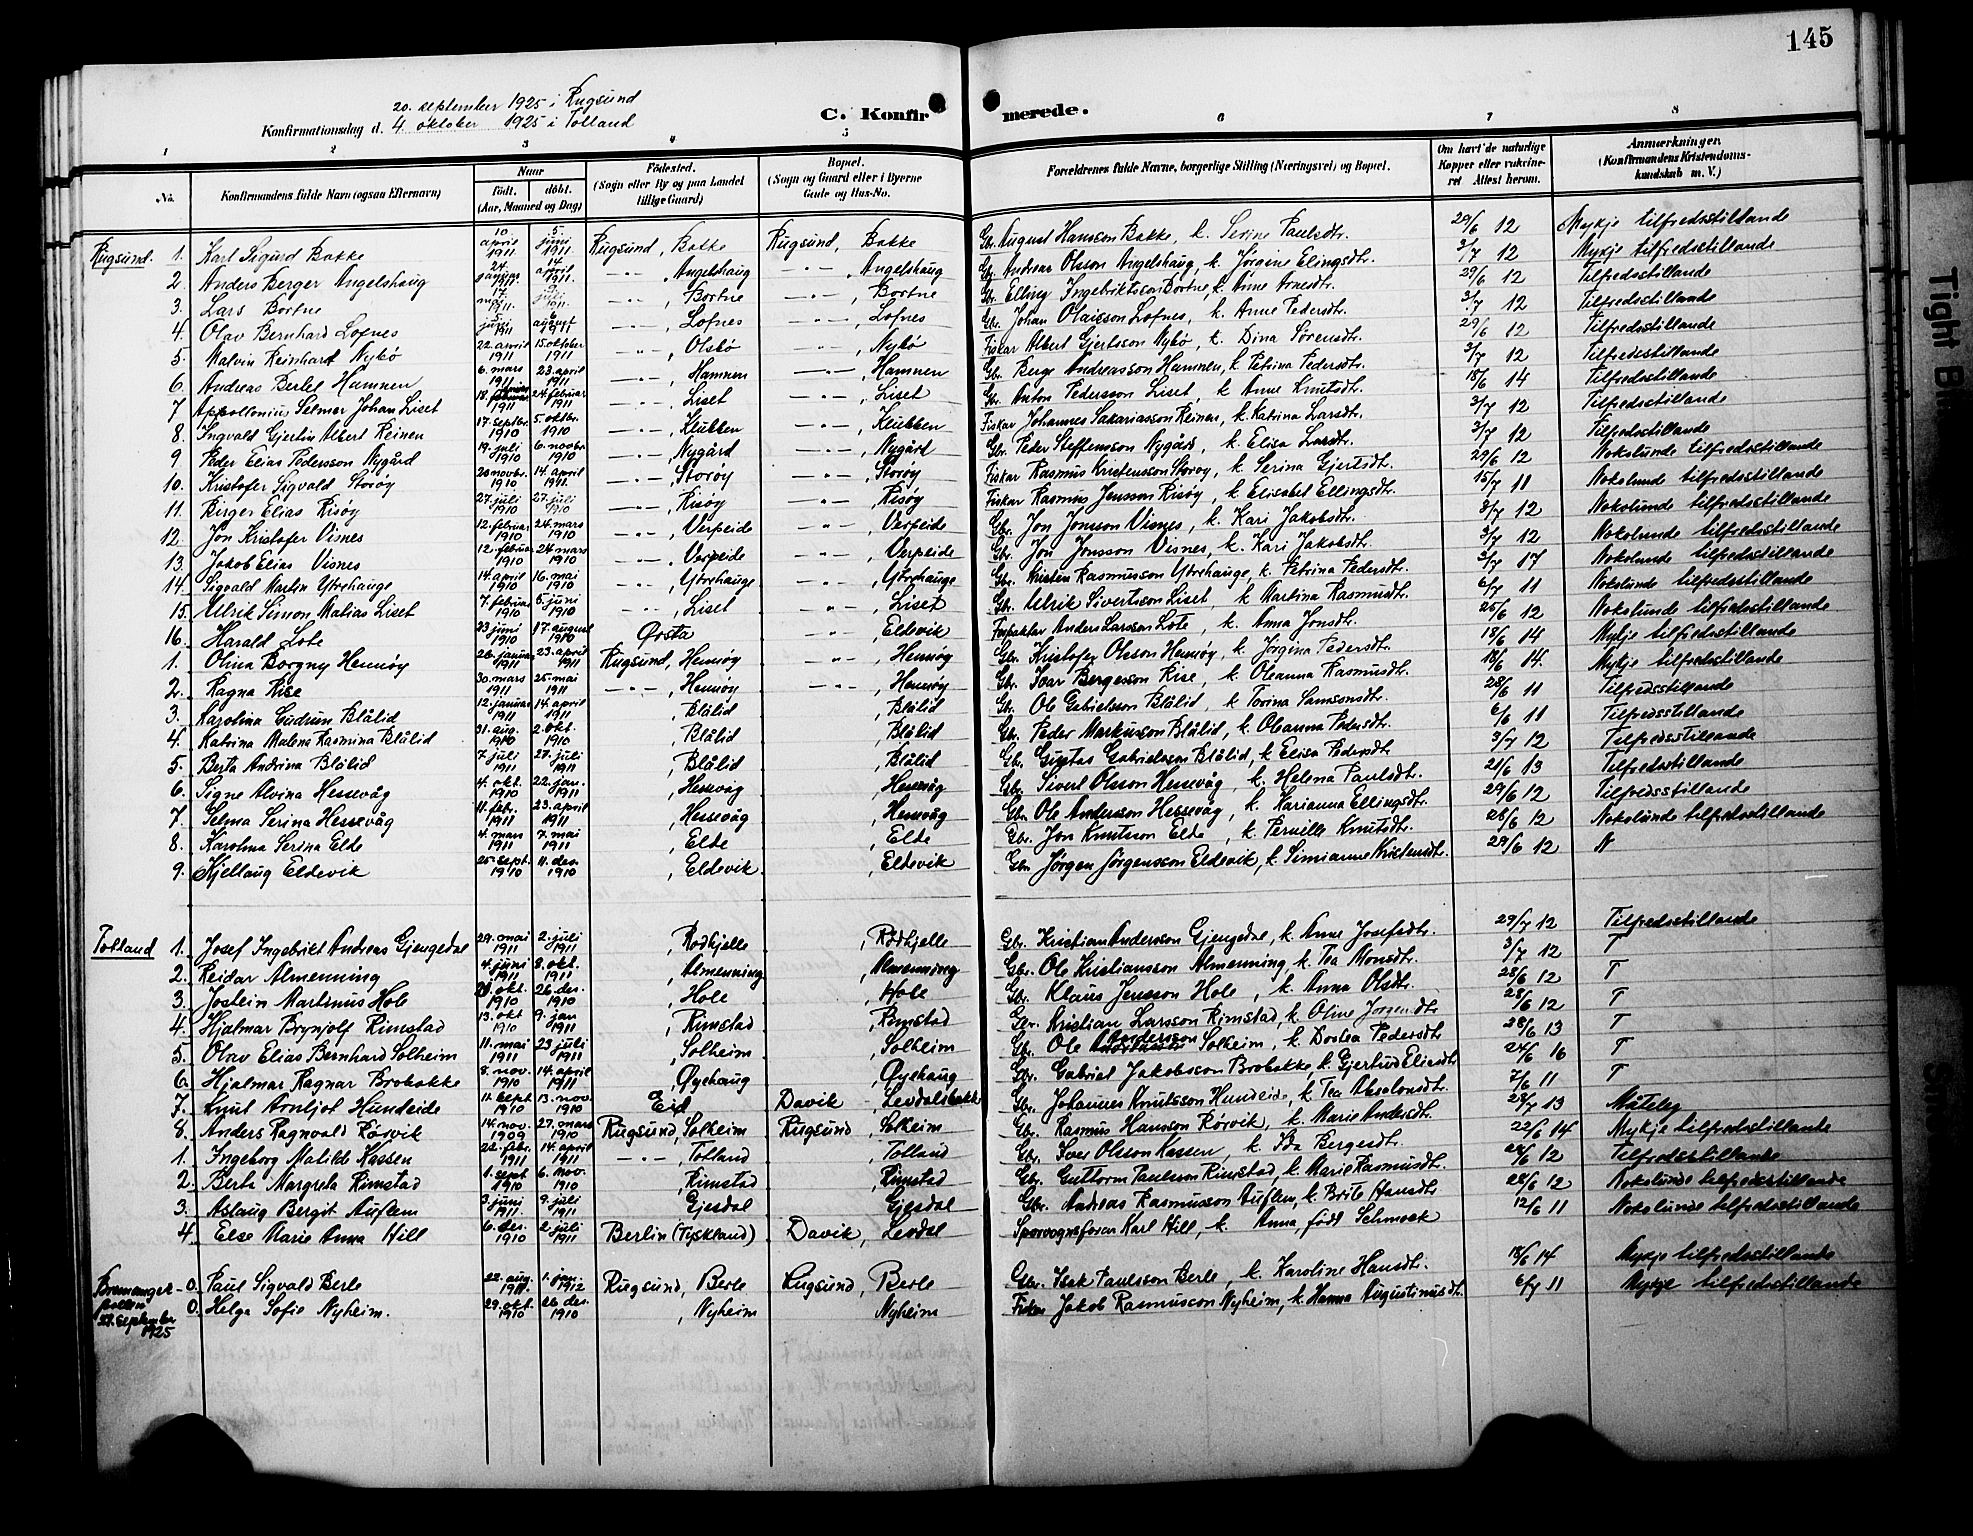 145
20. september 1925 i Rugsund
Konfirmationsdag d. 4 oktober 1925 i Totland
C. Konfirmerede.
1 2 3 4 5 6 7 8
No. Konfirmandens fulde Navn (ogsaa Efternavn) Naar født. døbt. (Aar, Maaned og Dag) Fødested. (Sogn eller By og paa Landet tillige Gaard) Bopæl. (Sogn og Gaard eller i Byerne Gade og Hus-No. Forældrenes fulde Navne, borgerlige Stilling (Næringsvei) og Bopæl. Om havt de naturlige Kopper eller vaccineret Attest herom. Anmærkninger. (Konfirmandens Kristendomskundskab m. V.)
Rugsund. 1. Karl Sigurd Bakke 10 april 1911 5. juni 1911 Rugsund, Bakke Rugsund, Bakke Gbr. August Hansson Bakke, k. Serine Paulsdtr. 29/6 12 Mykje tilfredsstillande
2. Anders Berger Angelshaug 24. januar 1911. 14 april 1911. —"— , Angelshaug —"— , Angelshaug Gbr. Andreas Olsson Angelshaug, k. Jørgine Elingsdtr. 3/7 12 Mykje tilfredsstillande
3. Lars Bortne 17 1911. juli 1911. —"— , Bortne —"— , Bortne Gbr. Elling Ingebriktson Bortne, k. Anne Arnesdtr. 29/6 12 Tilfredsstillande
4. Olav Bernhard Lofnes 5. 1911 6 august 1911 —"— , Lofnes —"— , Lofnes Gbr. Johan Olaisson Lofnes, k. Anne Pedersdtr. 3/7 12 Tilfredsstillande
5. Malvin Reinhart Nybø 22. april 1911 15. oktober 1911 —"— , Olsbø —"— , Nybø Fiskar Albert Gjertsson Nybø, k. Dina Sørensdtr. 29/6 12 Tilfredsstillande
6. Andreas Bertel Hamnen 6. mars 1911 23. april 1911 —"— , Hamnen —"— , Hamnen Gbr. Berge Andreasson Hamnen, k. Petrina Pedersdtr. 3/7 12 Tilfredsstillande
7 Appollonius Selmer Johan Liset 18. 1911 24. februar 1911 —"— , Liset —"— , Liset Gbr. Anton Pedersson Liset, k. Anne Knutsdtr. 18/6 14 Tilfredsstillande
8. Ingvald Gjertin Albert Reinen 17. septbr. 1910 5. oktbr. 1910 —"— , Klubben —"— , Klubben Fiskar Johannes Sakariasson Reinen, k. Katrina Larsdtr. 3/7 12 Tilfredsstillande
9 Peder Elias Pedersson Nygård 19. juli 1910 6. novbr. 1910 —"— , Nygård —"— , Nygård Gbr. Peder Steffensson Nygård, k. Elisa Larsdtr. 3/7 12 Tilfredsstillande
10. Kristofer Sigvald Storøy 20 novbr. 1910 14. april 1911. —"— , Storøy —"— , Storøy Fiskar Rasmus Kristensson Storøy, k. Serina Gjertsdtr. 29/6 12 Nokolunde tilfredsstillande
11. Birger Elias Risøy 27. juli 1910 27. juli 1910 —"— , Risøy —"— , Risøy Fiskar Rasmus Jensson Risøy, k. Elisabet Ellingsdtr. 15/7 11 Nokolunde tilfredsstillande
12. Jon Kristofer Visnes 12. februar 1910 24. mars 1910 —"— , Verpeide —"— , Verpeide Gbr. Jon Jonsson Visnes, k. Kari Jakobsdtr. 3/7 12 Nokolunde tilfredsstillande
13. Jakob Elias Visnes 12. februar 1910 24 mars 1910 —"— , Verpeide —"— , Verpeide Gbr. Jon Jonsson Visnes, k. Kari Jakobsdtr. 3/7 12 Nokolunde tilfredsstillande
14. Sigvald Martin Ytrehauge 14. april 1910 16. mai 1910 —"— , Ytrehauge —"— , Ytrehauge Gbr. Kristen Rasmusson Ytrehauge, k. Petrina Pedersdtr. 3/7 17 Nokolunde tilfredsstillande
15. Ulrik Simon Matias Liset 7. februar 1910 5. juni 1910 —"— , Liset "— , Liset Gbr. Ulrik Sivertsson Liset, k Martina Rasmusdtr. 6/7 11 Nokolunde tilfredsstillande
16. Harald Lote 23 juni 1910 17. august 1910 Ørsta —"— , Eldevik Forpaktar Anders Larsson Lote, k. Anna Jonsdtr. 25/6 12 Nokolunde tilfredsstillande
1. Olina Borgny Hennøy 26. januar 1911 23. april 1911 Rugsund, Hennøy —"— , Hennøy Gbr. Kristofer Olsson Hennøy, k. Jørgina Pedersdtr. 18/6 14 Mykje tilfredsstillande
2. Ragna Rise 30. mars 1911 25. mai 1911 —"— , Hennøy —"— , Hennøy Gbr. Ivar Bergesson Rise, k. Oleanna Rasmusdtr. 18/6 14. Mykje tilfredsstillande
3. Karolina Gudrun Blålid 12. januar 1911 14. april 1911 , Blålid , Blålid Gbr. Ole Gabrielsson Blålid, k Torina Samsonsdtr. 28/6 11 Tilfredsstillande
4. Katrina Malena Rasmina Blålid 31. aug. 1910 2. okt. 1910 , Blålid , Blålid Gbr. Peder Markusson Blålid, k. Oleanna Pedersdtr. 6/6 11 Tilfredsstillande
5. Berta Andrina Blålid 7. juli 1911 27. juli 1911 , Blålid , Blålid Gbr. Gabrielsson Blålid, k Elisa Pedersdtr. 3/7 12 Tilfredsstillande
6. Signe Alvina Hessevåg 4. okt. 1910 22. jan. 1911 , Hessevåg , Hessevåg Gbr. Sivert Olsson Hessevåg, k. Helena Paulsdtr. 21/6 13 Tilfredsstillande
7. Selma Serina Hessevåg 11. febr. 1911 23. april 1911 , Hessevåg , Hessevåg Gbr. Ole Andersson Hessevåg, k. Karianna Ellingsdtr. 29/6 12 Tilfredsstillande
8. Karolina Serina Elde 4. mars 1911 7. mai 1911 , Elde , Elde Gbr. Jon Knutsson Elde, k. Pernille Knutsdtr. 28/6 12 Nokolunde tilfredsstillande
9. Kjellaug Eldevik 25. sept. 1910 11. des. 1910 , Eldevik , Eldevik Gbr. Jørgen Jørgensson Eldevik, k. Simianna Kristensdtr. 29/6 12 N
Totland 1. Josef Ingebrikt Andreas Gjengedal 29. mai 1911 2. juli 1911 , Rodhjelle , Rodhjelle Gbr. Kristian Andersson Gjengedal, k. Anne Josefsdtr. 29/7 12 Tilfredsstillande
2. Reidar Almenning 4. juni 1911 8. okt. 1911 , Almenning , Almenning Gbr. Ole Kristiansson Almenning, k. Tea Monsdtr. 3/7 12 T
3. Jostein Martinus Hole okt. 1910 26. des. 1910 , Hole , Hole Gbr. Klaus Jensson Hole, k. Anna Olsdtr. 28/6 12 T
4. Hjalmar Brynjolf Rimstad 13. okt 1910 9. jan 1911 , Rimstad , Rimstad Gbr. Kristian Larsson Rimstad, k. Oline Jørgensdtr. 28/6 12 T
5. Olav Elias Bernhard Solheim 11. mai 1911 23 juli 1911 , Solheim , Solheim Gbr. Ole Andersson Solheim, k. Dortea Pedersdtr. 28/6 13 T
6. Hjalmar Ragnar Brobakke 8. nov. 1910 14. april 1911 , Øyehaug , Øyehaug Gbr. Gabriel Jakobsson Brobakke, k. Gjertrud Eliasdtr. 24/6 16 T
7. Knut Arnljot Hundeide 11. sept 1910 13. nov. 1910 Eid Davik , Levdalsbakk Gbr. Johannes Knutsson Hundeide, k. Tea Absalonsdtr. 7/6 11 T
8. Anders Ragnvald Rørvik 14. nov. 1909 27. mars 1910 Rugsund, Solheim Rugsund , Solheim Gbr. Rasmus Hansson Rørvik, k. Marie Andersdtr. 28/7 13 Måteleg
1. Ingeborg Matilde Kassen 22. febr. 1911 14. april 1911 —"— , Totland , Totland Gbr. Iver Olsson Kassen, k. Ida Bergesdtr. 22/6 14 Mykje tilfredsstillande
2. Berta Margreta Rimstad 1. sept 1910 6. nov. 1910 , Rimstad , Rimstad Gbr. Guttorm Paulsson Rimstad, k. Marie Rasmusdtr. 28/6 12 Tilfredsstillande
3. Aslaug Bergit Auflem 3. juni 1911. 9. juli 1911 , Gjesdal , Gjesdal Gbr. Andreas Rasmusson Auflem, k. Brite Hansdtr 28/6 12 Nokolunde tilfredsstillande
4 Else Marie Anna Hill 6. des. 1910 2. juli 1911 Berlin (Tyskland) Davik, Levdal Sporvognsforar Karl Hill, k. Anna, født Schmock 12/6 11 Nokolunde tilfredsstillande
Bremanger- 0. Paul Sigvald Berle 22. aug. 1911 1. jan 1912 Rugsund, Berle Rugsund, Berle Gbr. Isak Paulsson Berle, k. Karoline Hansdtr. 18/6 14 Mykje tilfredsstillande
pollen 0. Helga Sofie Nyheim. 29. okt. 1910 26. des. 1910 , Nyheim Nyheim Fiskar Jakob Rasmusson Nyheim, k. Hanna Augustinusdtr. 6/7 11 Mykje tilfredsstillande
27. september
1925
Tight Bi